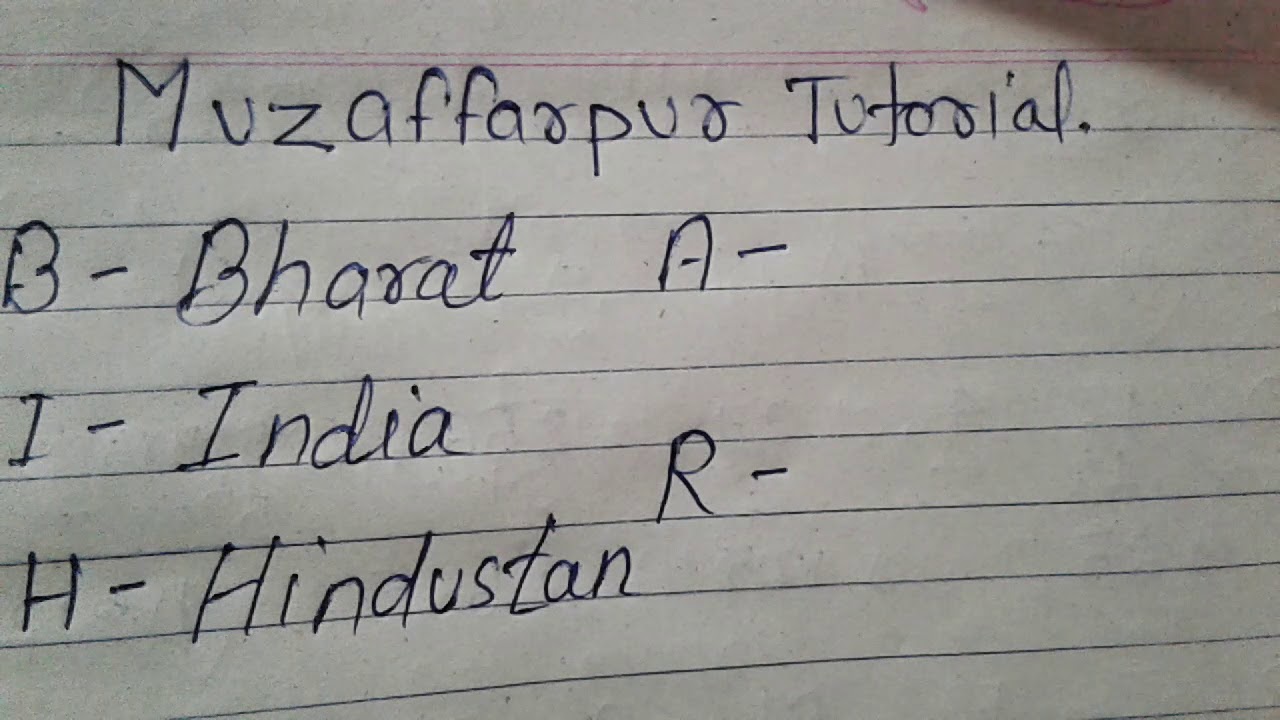 Muzaffarpur Tutorial.
B - Bharat A -
I - India
R -
H - Hindustan